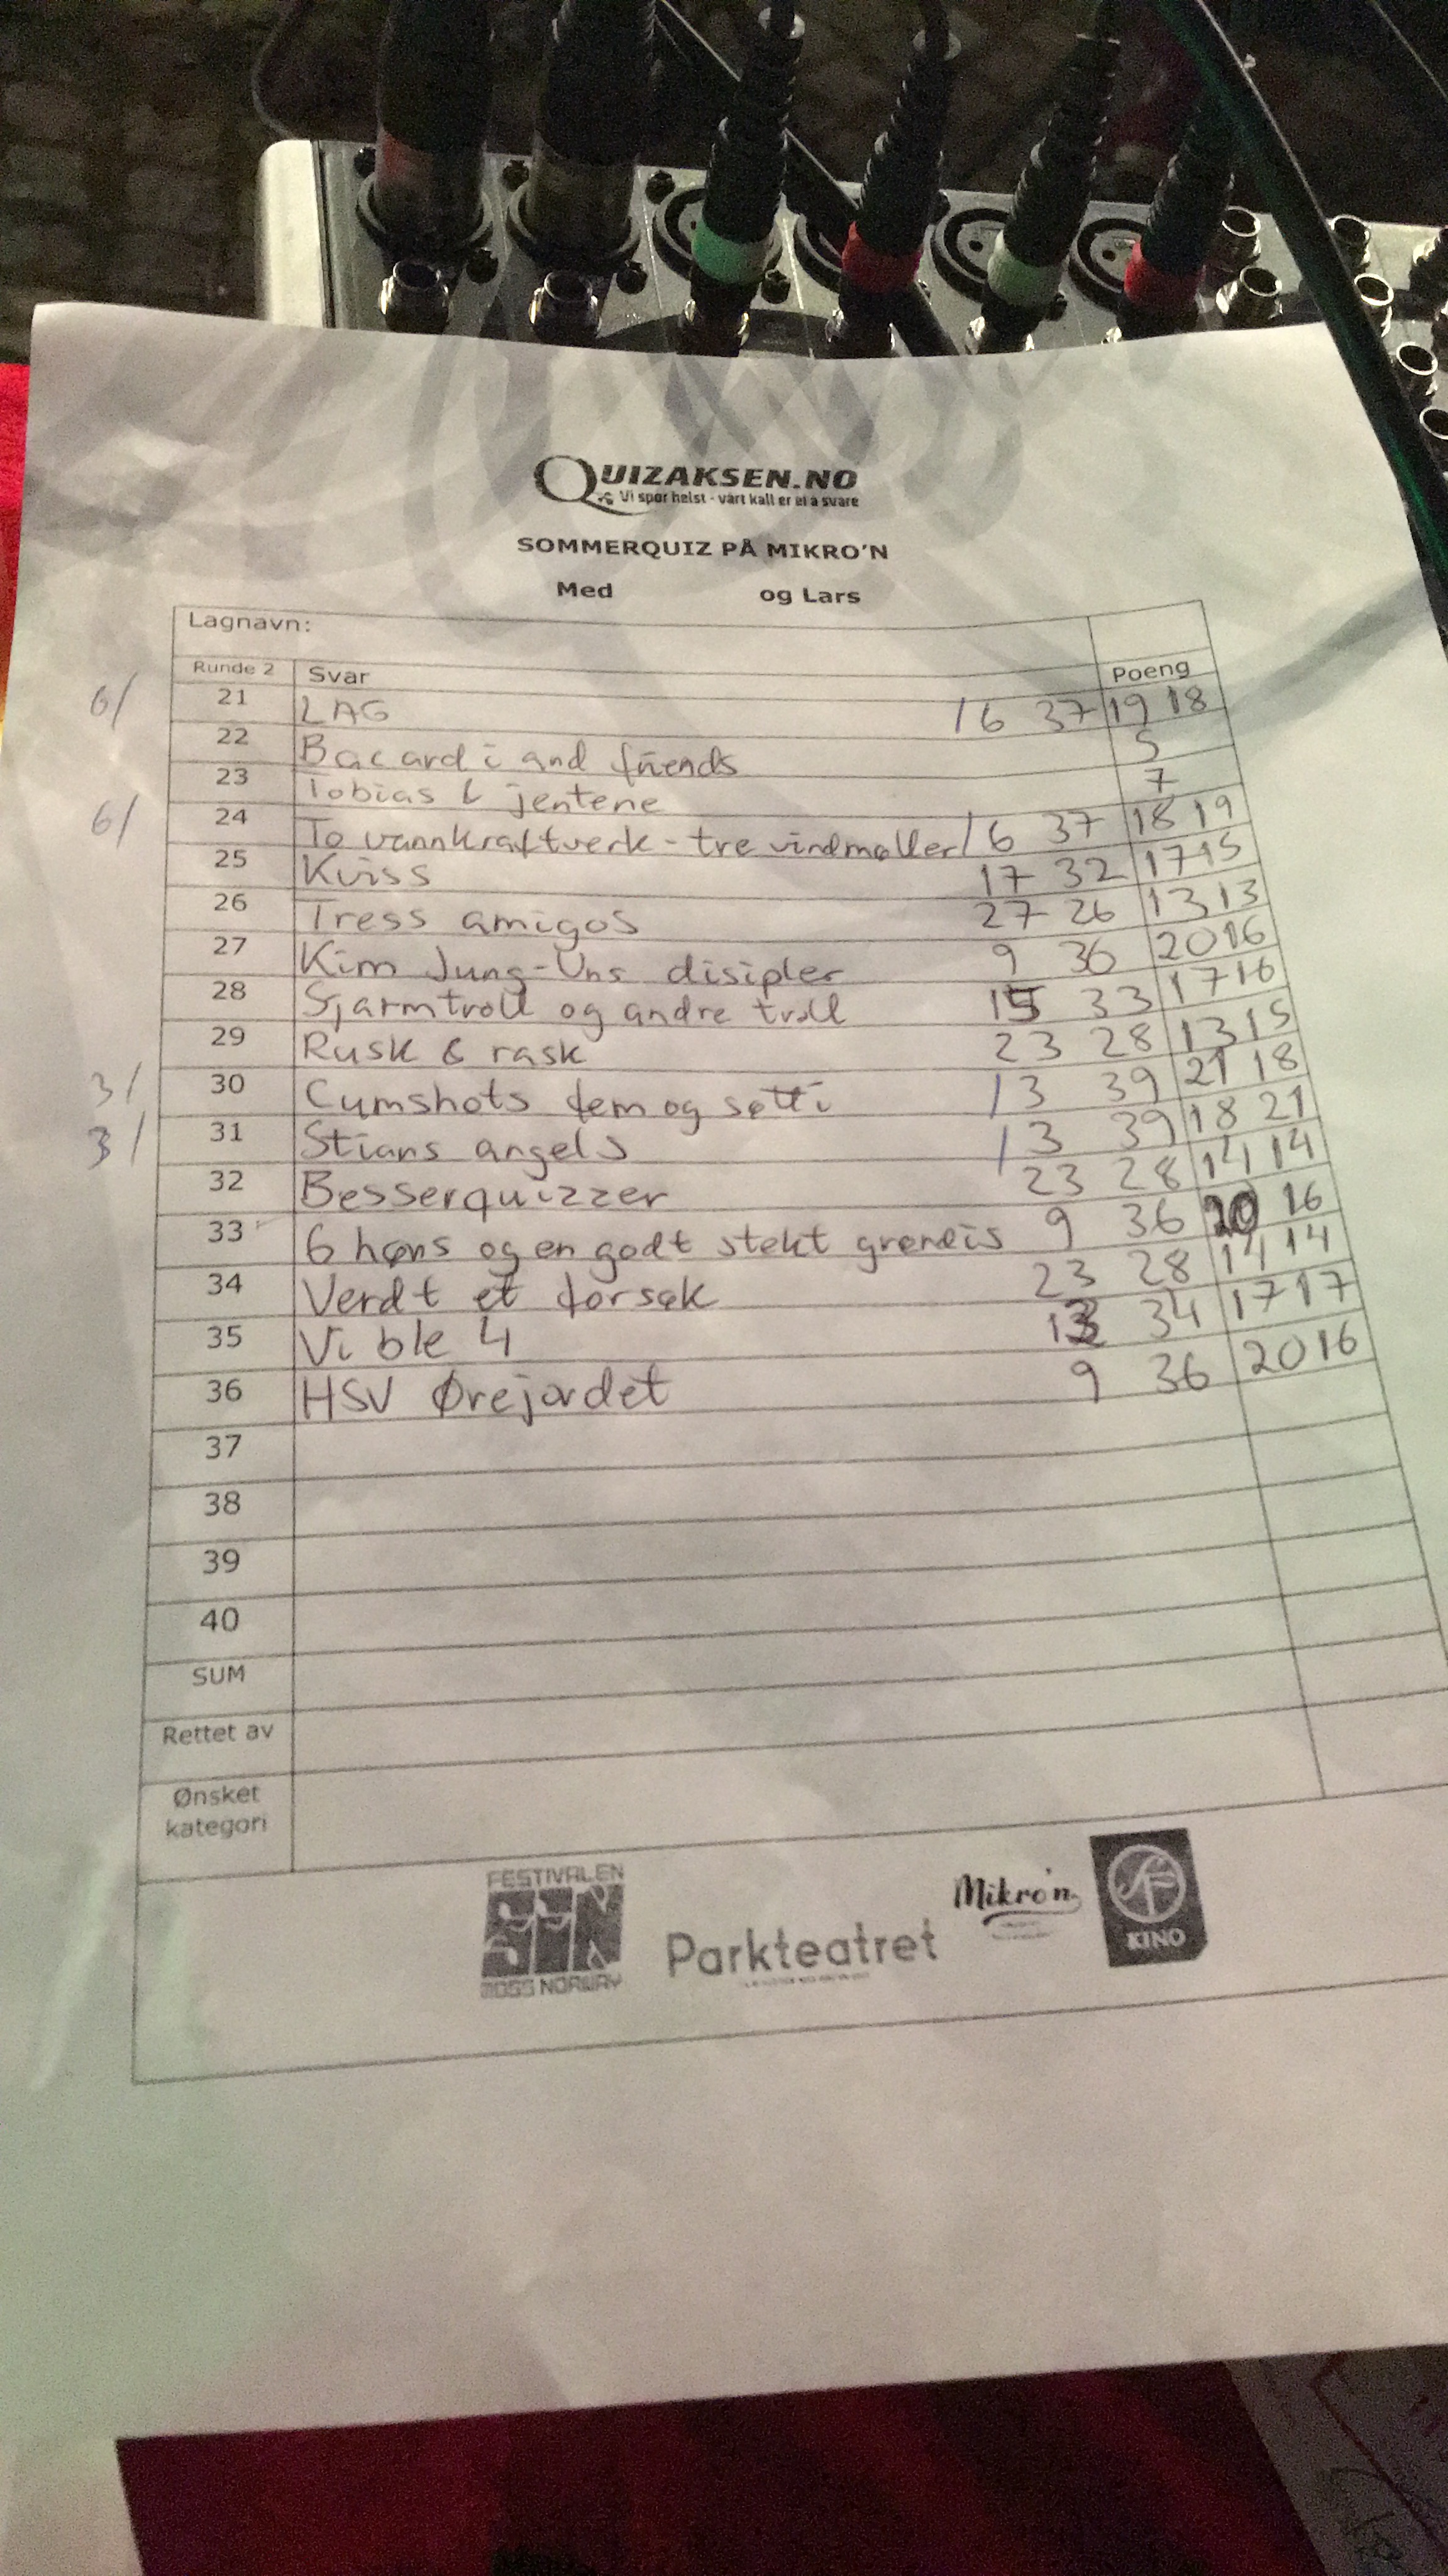 QUIZAKSEN.NO
Vi spør helst - vårt kall er ei å svare
SOMMERQUIZ PÅ MIKRO'N
Med og Lars
Lagnavn:
Runde 2 Svar Poeng
6/ 21 LAG / 6 37 19 18
22 Bacardi and friends 5
23 Tobias & jentene 7
6/ 24 To vannkraftverk - tre vindmøller / 6 37 18 19
25 Kviss 17 32 17 15
26 Tress amigos 27 26 13 13
27 Kim Jung-Uns disipler 9 36 20 16
28 Sjarmtroll og andre troll 15 33 17 16
29 Rusk & rask 23 28 13 15
3/ 30 Cumshots fem og søtti / 3 39 21 18
3/ 31 Stians angels / 3 39 18 21
32 Besserquizzer 23 28 14 14
33 6 høns og en godt stekt grandis 9 36 20 16
34 Verdt et forsøk 23 28 14 14
35 Vi ble 4 13 34 17 17
36 HSV Ørejordet 9 36 20 16
37
38
39
40
SUM
Rettet av
Ønsket
kategori
FESTIVALEN
SEN
MOSS NORWAY
Parkteatret
Mikro'n
KINO